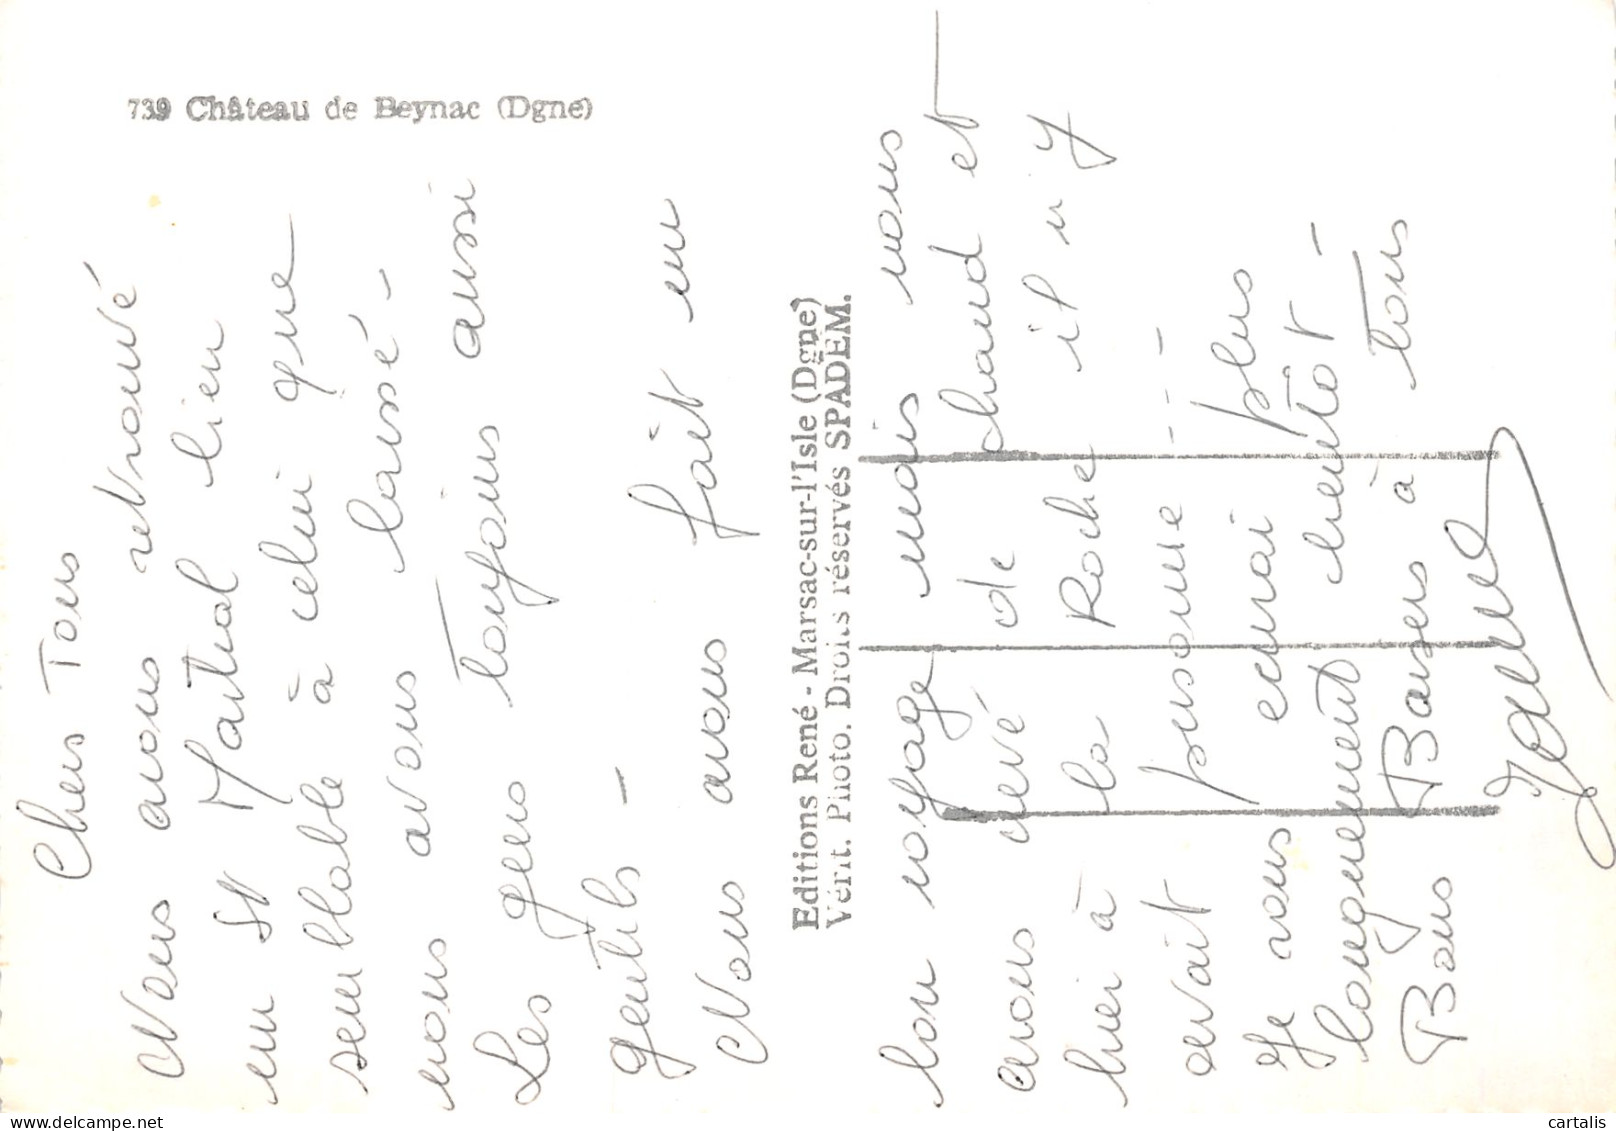 739 Château de Beynac (Dgne)
Chers Tous
Nous avons retrouvé
un St Martial bien
semblable à celui que
nous avons laissé -
Les gens toujours aussi
gentils -
Nous avons fait un
Editions René - Marsac-sur-l'Isle (Dgne)
Vérit. Photo. Droits réservés SPADEM.
bon voyage mais nous
avons crevé de chaud et
hier à la Roche il n'y
avait personne - - -
Je vous ecrirai plus
longuement bientôt -
Bons Baisers à tous
cartalis